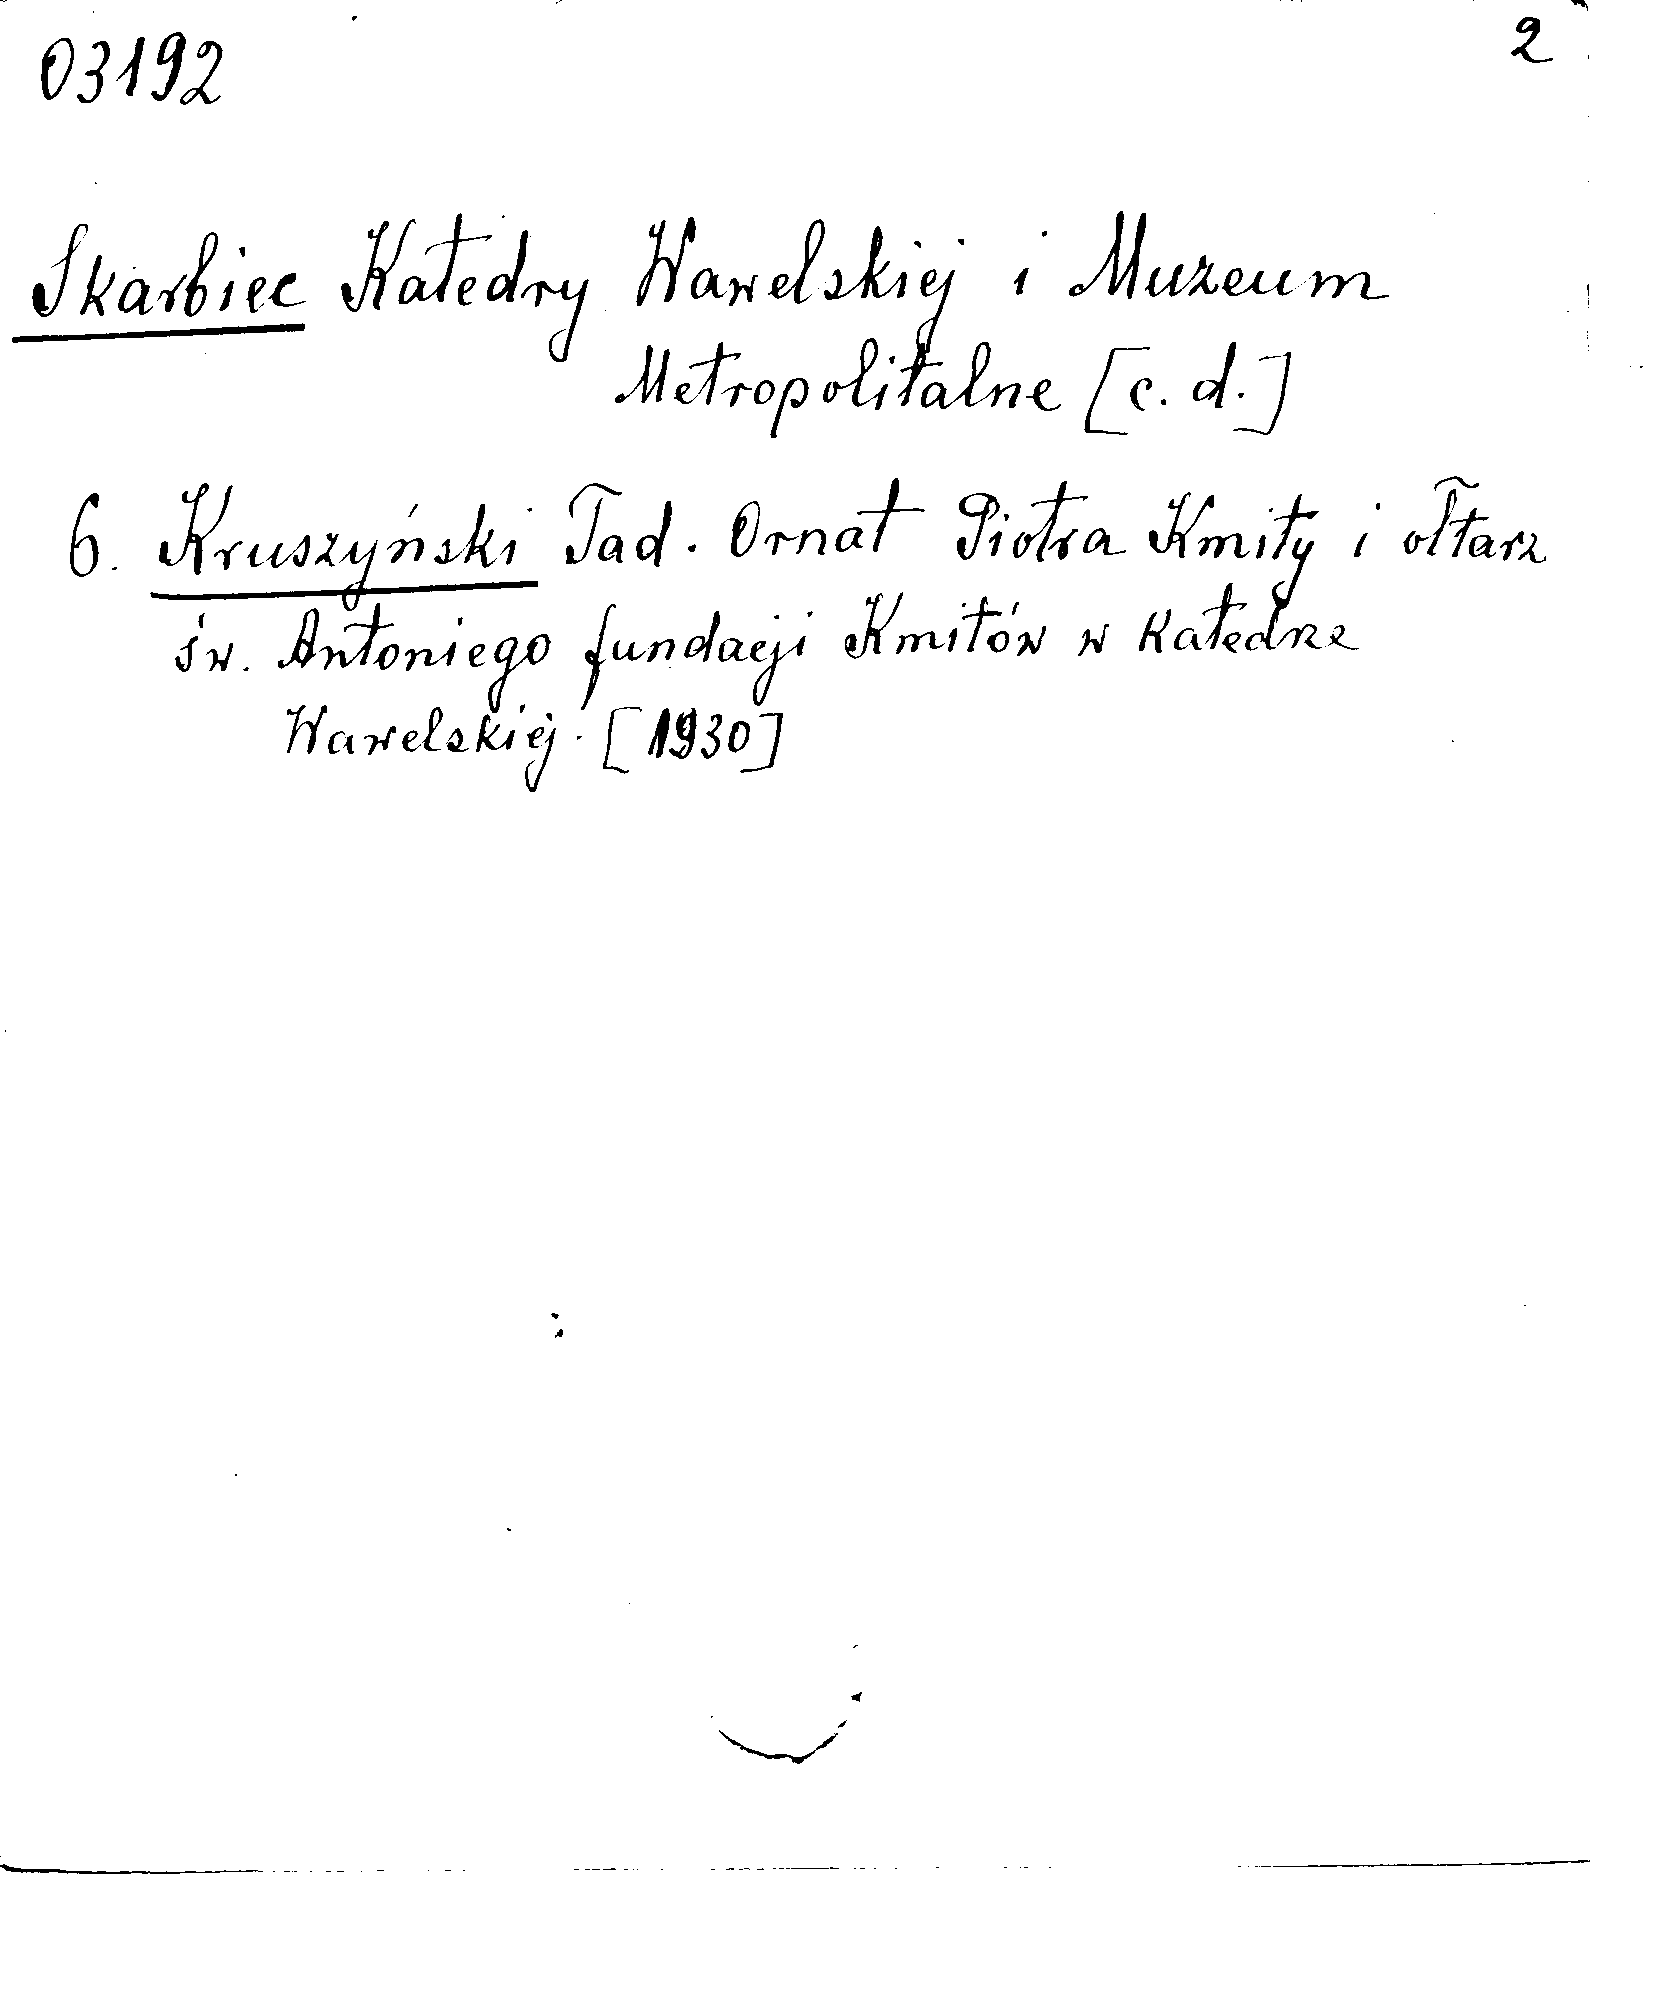 03192
2
Skarbiec Katedry Wawelskiej i Muzeum
Metropolitalne [c. d.]
6. Kruszyński Tad. Ornat Piotra Kmity i ołtarz
św. Antoniego fundacji Kmitów w Katedrze
Wawelskiej. [1930]